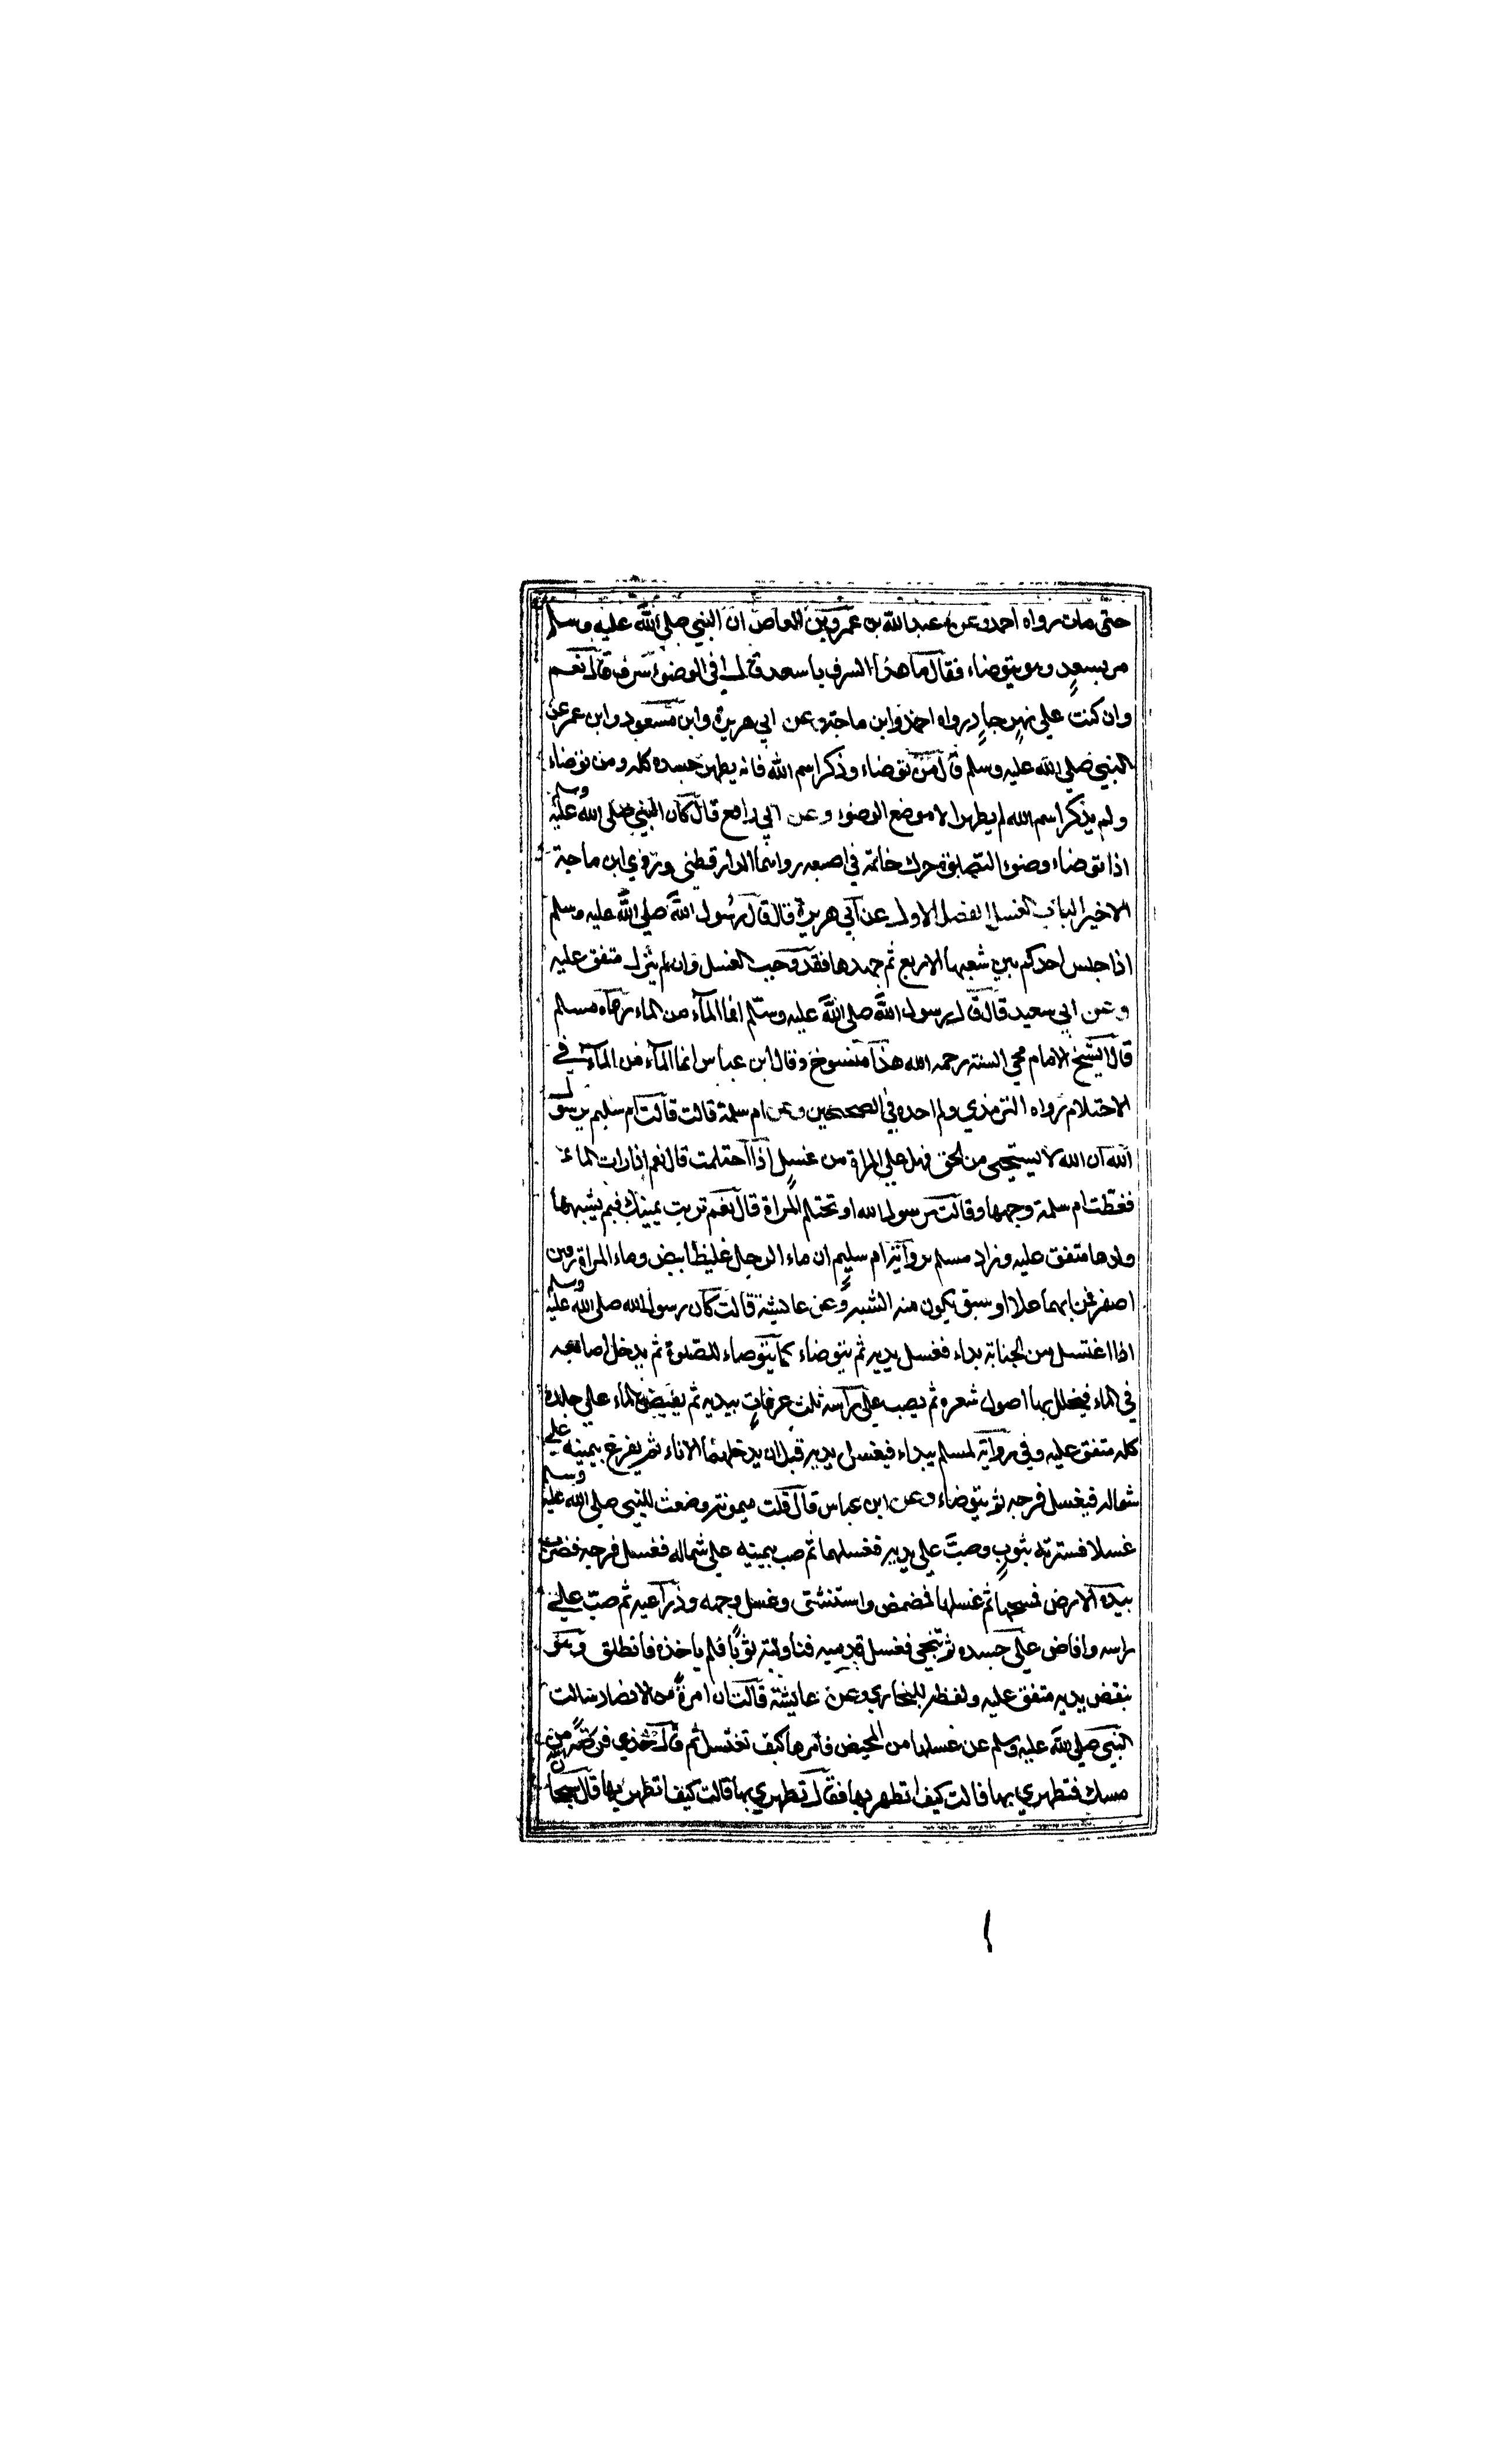 حتى مات رواه احمد وعن عبد الله بن عمرو بن العاص ان النبي صلى الله عليه وسلم
مر بسعد وهو يتوضاء فقال ما هذا السرف يا سعد قال افي الوضوء سرف قال نعم
وان كنت علي نهر جار رواه احمد وابن ماجة وعن ابي هريرة وابن مسعود وابن عمر عن
النبي صلي الله عليه وسلم قال من توضاء وذكر اسم الله فانه يطهر جسده كله ومن توضاء
ولم يذكر اسم الله لم يطهر الا موضع الوضوء وعن ابي رافع قال كان النبي صلى الله عليه وسلم
اذا توضاء وضوء الصلوة حرك خاتمه في اصبعه رواهما الدارقطني وروي ابن ماجة
الاخير الباب الغسل الفصل الاول عن ابي هريرة قال قال رسول الله صلي الله عليه وسلم
اذا جلس احدكم بين شعبها الاربع ثم جهدها فقد وجب الغسل وان لم ينزل متفق عليه
وعن ابي سعيد قال قال رسول الله صلى الله عليه وسلم انما الماء من الماء رواه مسلم
قال الشيخ الامام محي السنة رحمه الله هذا منسوخ وقال ابن عباس انما الماء من الماء في
الاحتلام رواه الترمذي ولم اجده في الصحيحين وعن ام سلمة قالت قالت ام سليم يرسول
الله ان الله لا يستحيى من الحق فهل علي المراة من غسل اذا احتلمت قال نعم اذا رات الماء
فغطت ام سلمة وجهها وقالت يرسول الله او تحتلم المراة قال نعم تربت يمينك فبم يشبهها
ولدها متفق عليه وزاد مسلم برواية ام سليم ان ماء الرجل غليظ ابيض وماء المراة رقيق
اصفر فمن ايهما علا او سبق يكون منه الشبه وعن عايشة قالت كان رسول الله صلى الله عليه وسلم
اذا اغتسل من الجنابة بداء فغسل يديه ثم يتوضاء كما يتوضاء للصلوة ثم يدخل اصابعه
في الماء فيخلل بها اصول شعره ثم يصب على راسه ثلث غرفات بيديه ثم يفيض الماء علي جلده
كله متفق عليه وفي رواية لمسلم يبداء فيغسل يديه قبل ان يدخلهما الاناء ثم يفرغ بيمينه علي
شماله فيغسل فرجه ثم يتوضاء وعن ابن عباس قال قالت ميمونة وضعت للنبي صلي الله عليه وسلم
غسلا فسترته بثوب وصب علي يديه فغسلهما ثم صب بيمينه علي شماله فغسل فرجه فضرب
بيده الارض فمسحها ثم غسلها فمضمض واستنشق وغسل وجهه وذراعيه ثم صب علي
راسه وافاض علي جسده ثم تنحي فغسل قدميه فناولته ثوبا فلم ياخذه فانطلق وهو
ينفض يديه متفق عليه ولفظه للبخاري وعن عايشة قالت ان امرة من الانصار سالت
النبي صلي الله عليه وسلم عن غسلها من المحيض فامرها كيف تغتسل ثم قال خذي فرصة من
مسك فتطهري بها قالت كيف اتطهر بها فقال تطهري بها قالت كيف اتطهر بها قال سبحان الله